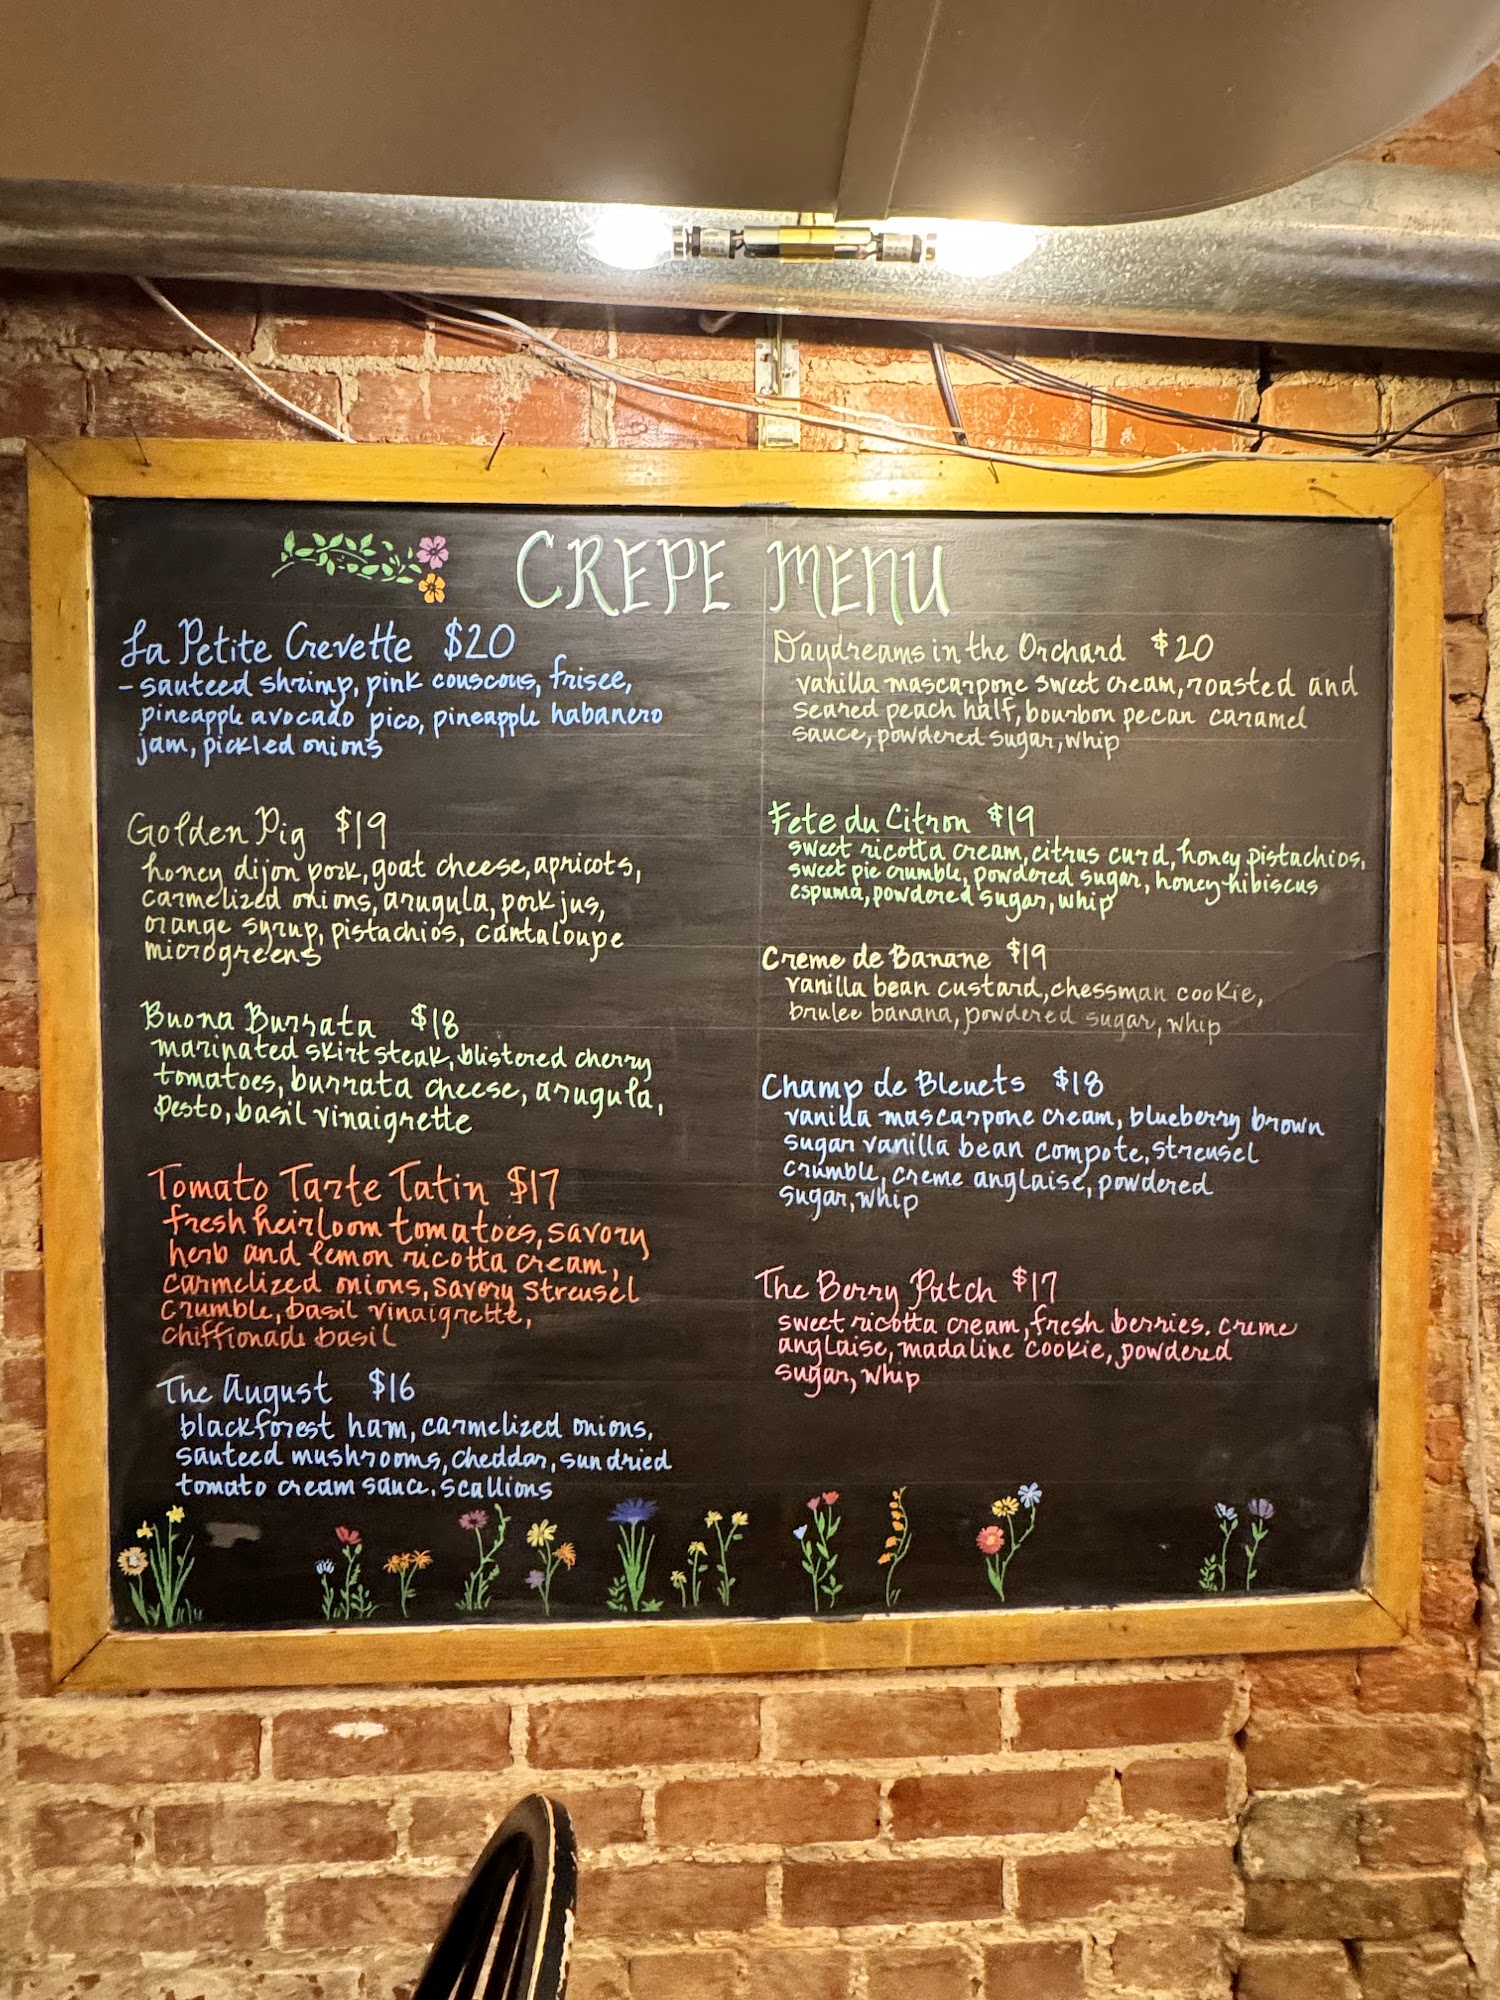 CREPE MENU
La Petite Crevette $20
- sauteed shrimp, pink couscous, frisee,
pineapple avocado pico, pineapple habanero
jam, pickled onions
Golden Pig $19
honey dijon pork, goat cheese, apricots,
carmelized onions, arugula, pork jus,
orange syrup, pistachios, cantaloupe
microgreens
Buona Burrata $18
marinated skirt steak, blistered cherry
tomatoes, burrata cheese, arugula,
pesto, basil vinaigrette
Tomato Tarte Tatin $17
fresh heirloom tomatoes, savory
herb and lemon ricotta cream,
carmelized onions, savory streusel
crumble, basil vinaigrette,
chiffionade basil
The August $16
blackforest ham, carmelized onions,
sauteed mushrooms, cheddar, sundried
tomato cream sauce, scallions
Daydreams in the Orchard $20
vanilla mascarpone sweet cream, roasted and
seared peach half, bourbon pecan caramel
sauce, powdered sugar, whip
Fete du Citron $19
sweet ricotta cream, citrus curd, honey pistachios,
sweet pie crumble, powdered sugar, honey-hibiscus
espuma, powdered sugar, whip
Creme de Banane $19
vanilla bean custard, chessman cookie,
brulee banana, powdered sugar, whip
Champ de Bleuets $18
vanilla mascarpone cream, blueberry brown
sugar vanilla bean compote, streusel
crumble, creme anglaise, powdered
sugar, whip
The Berry Patch $17
sweet ricotta cream, fresh berries. creme
anglaise, madaline cookie, powdered
sugar, whip